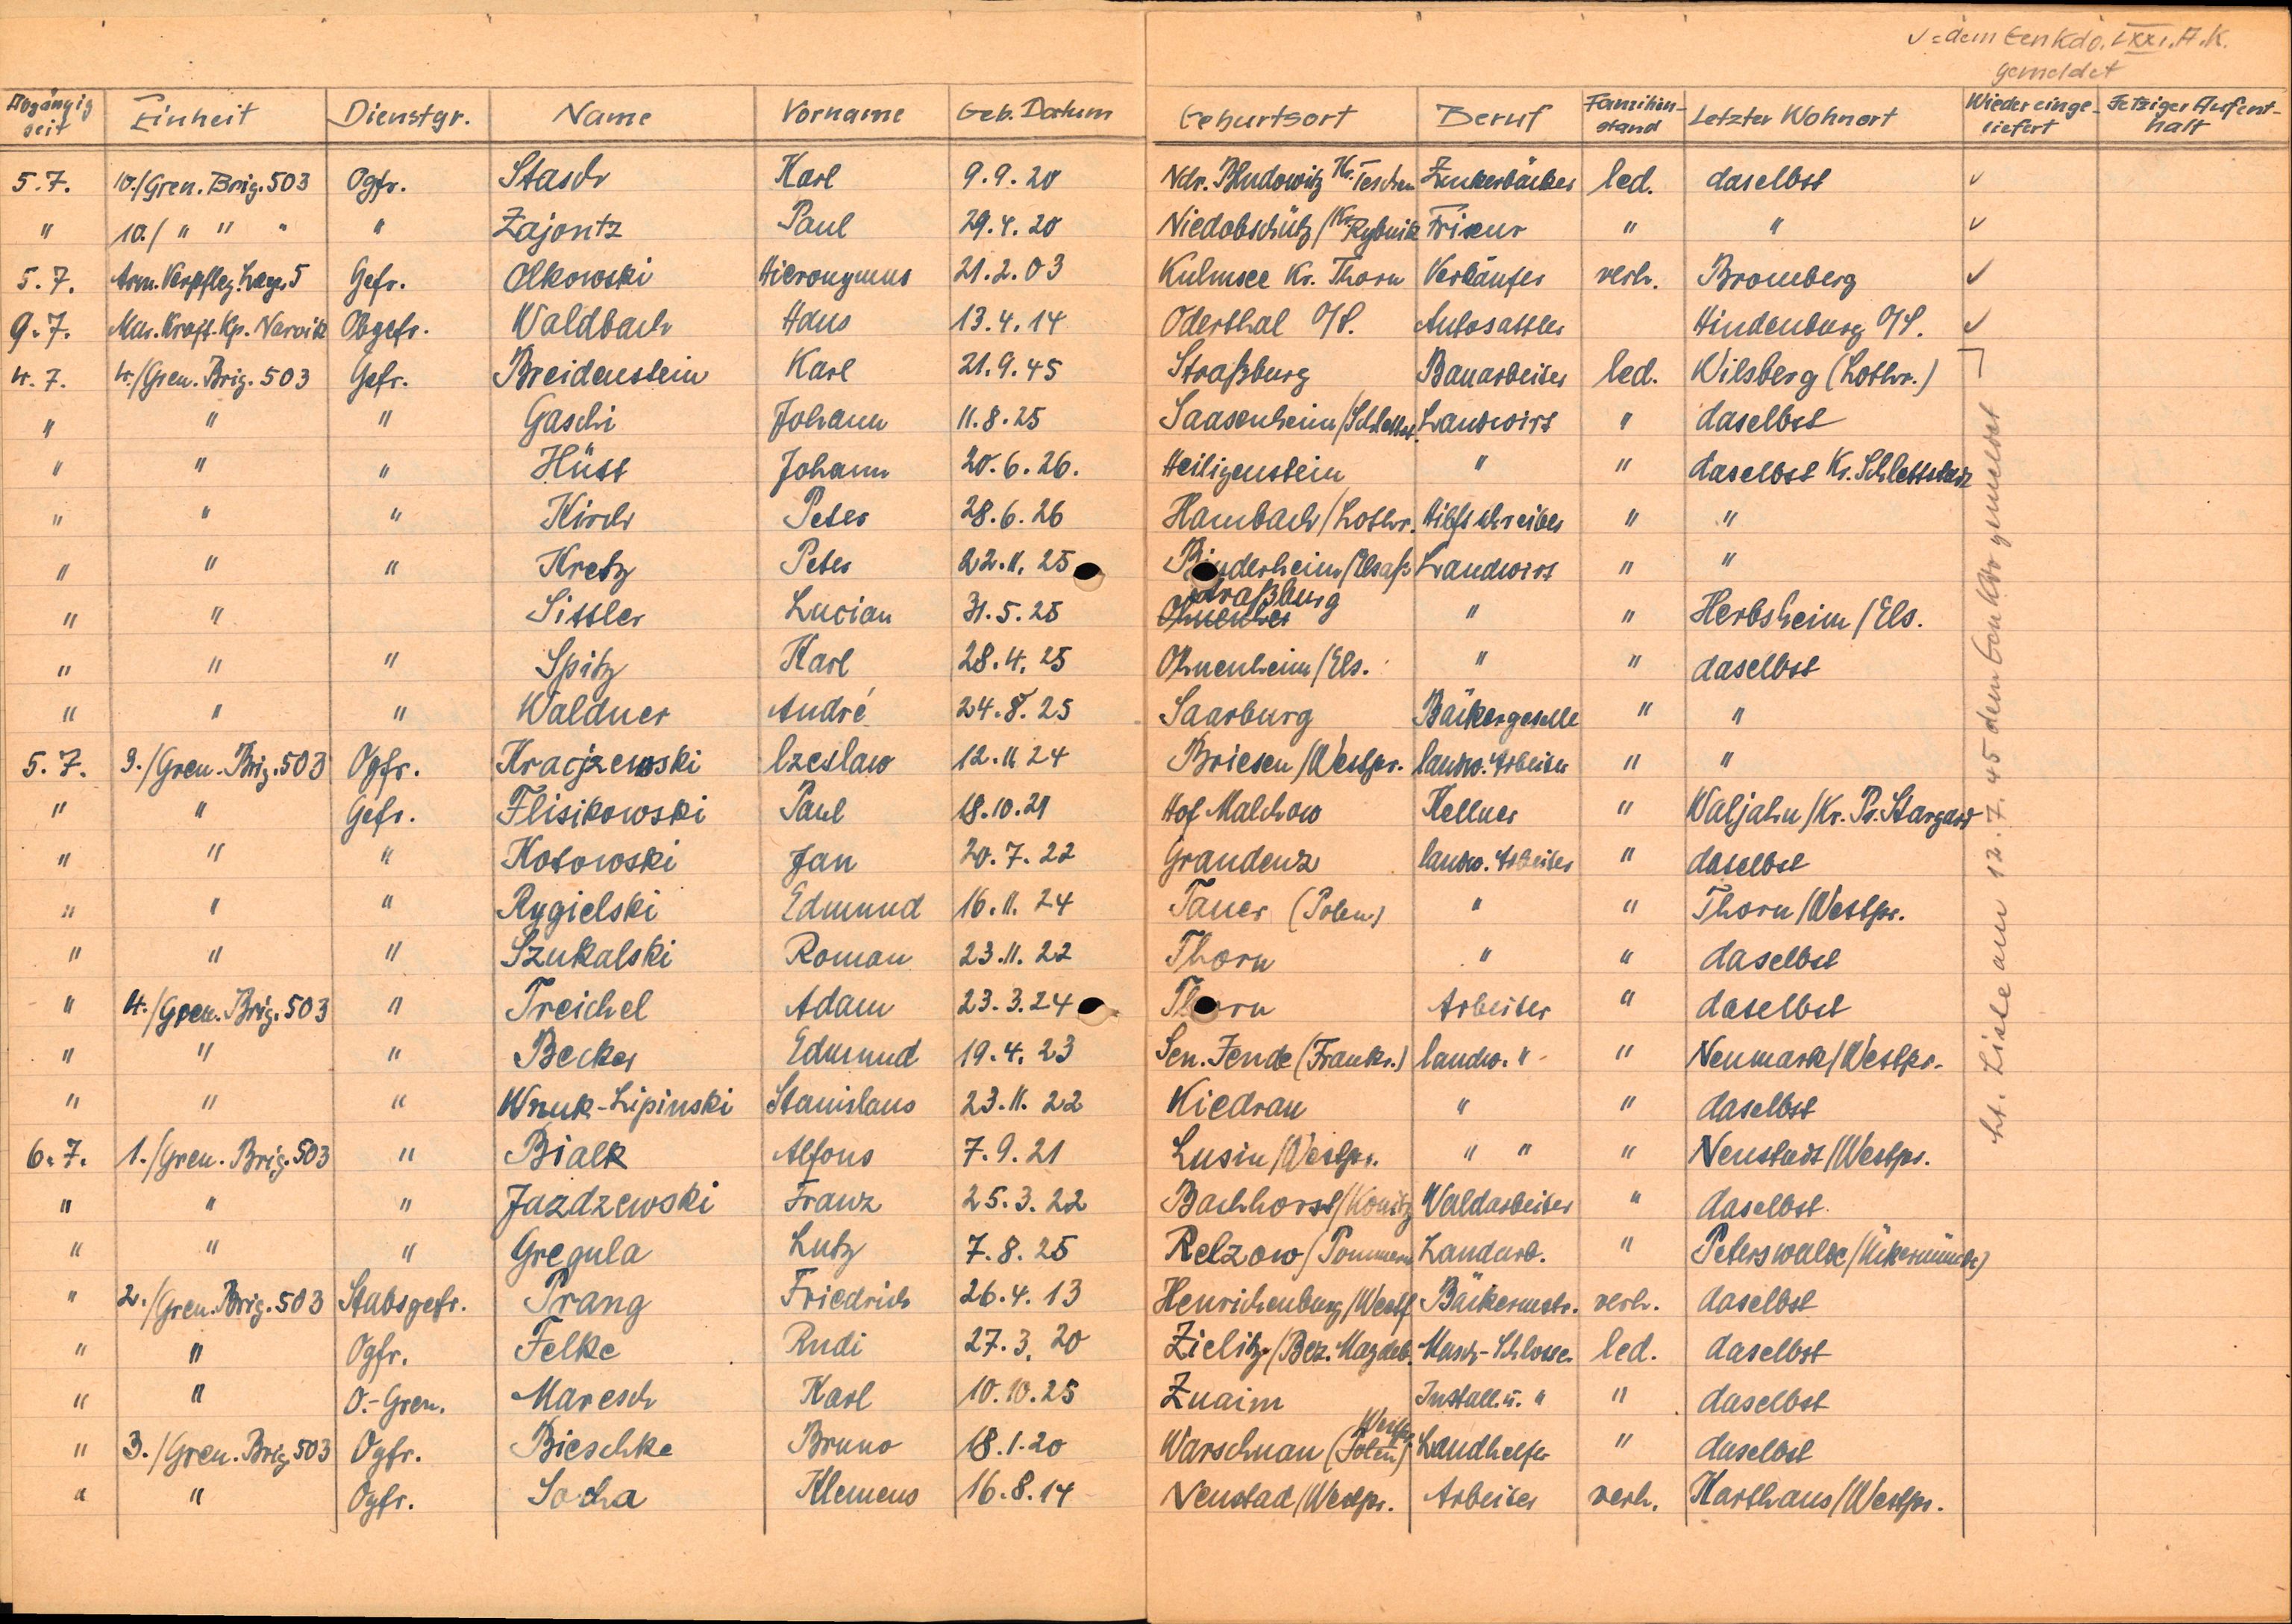 ✓ = dem Gen Kdo. LXXI. A.K.
gemeldet
Abgängig seit Einheit Dienstgr. Name Vorname Geb. Datum Geburtsort Beruf Familienstand Letzter Wohnort Wiedereingeliefert Jetziger Aufenthalt
5.7. 10./Gren. Brig. 503 Ogfr. Stasch Karl 9.9.20 Ndr. Bludowitz Kr. Teschen Zuckerbäcker led. daselbst ✓
" 10./ " " " " Zajontz Paul 29.4.20 Niedobschütz/Kr. Rybnik Friseur " " ✓
5.7. Arm. Verpfleg. Lag. 5 Gefr. Olkowski Hieronymus 21.2.03 Kulmsee Kr. Thorn Verkäufer verh. Bromberg ✓
9.7. Mar. Kraft. Kp. Narvik Obgefr. Waldbach Hans 13.4.14 Oderthal O/S. Autosattler Hindenburg O/S. ✓
4.7. 4./Gren. Brig. 503 Gefr. Breidenstein Karl 21.9.45 Straßburg Bauarbeiter led. Wilsberg (Lothr.)
" " " Gaschi Johann 11.8.25 Saasenheim/Schlettst. Landwirt " daselbst
" " " Hüst Johann 20.6.26. Heiligenstein " " daselbst Kr. Schlettstadt
" " " Kirch Peter 28.6.26 Hambach/Lothr. Hilfsschreiber " "
" " " Kretz Peter 22.11.25 Binderheim/Elsaß Landwirt " "
" " Sittler Lucian 31.5.25 Straßburg " " Herbsheim/Els.
" " " Spitz Karl 28.4.25 Ohnenheim/Els. " " daselbst
" " " Waldner André 24.8.25 Saarburg Bäckergeselle " "
5.7. 3./Gren. Brig. 503 Ogfr. Kracjzewski Czeslaw 12.11.24 Briesen/Westpr. landw. Arbeiter " "
" " Gefr. Flisikowski Paul 18.10.21 Hof Malchow Kellner " Waljahn/Kr. Pr. Stargard
" " " Kotowski Jan 20.7.22 Graudenz landw. Arbeiter " daselbst
" " " Rygielski Edmund 16.11.24 Tauer (Polen) " " Thorn/Westpr.
" " " Szukalski Roman 23.11.22 Thorn " " daselbst
" 4./Gren. Brig. 503 " Treichel Adam 23.3.24 Thorn Arbeiter " daselbst
" " " Becker Edmund 19.4.23 Sen. Jende (Frankr.) landw. " " Neumark/Westpr.
" " " Wnuk-Lipinski Stanislaus 23.11.22 Kiedrau " " daselbst
6.7. 1./Gren. Brig. 503 " Bialk Alfons 7.9.21 Lusin/Westpr. " " " Neustadt/Westpr.
" " " Jazdzewski Franz 25.3.22 Bachhorst/Konitz Waldarbeiter " daselbst
" " " Gregula Lutz 7.8.25 Relzow/Pommern Landarb. " Peterswalde/Ückermünde)
" 2./Gren. Brig. 503 Stabsgefr. Prang Friedrich 26.4.13 Henrichenburg/Westf Bäckermstr. verh. daselbst
" " Ogfr. Felke Rudi 27.3.20 Zielitz/Bez. Magdeb. Masch-Schlosser led. daselbst
" " O.-Gren. Maresch Karl 10.10.25 Znaim Install. u. " " daselbst
" 3./Gren. Brig. 503 Ogfr. Bieschke Bruno 18.1.20 Warschnau (Polen) Westpr. Landhelfer " daselbst
" " Ogfr. Socha Klemens 16.8.14 Neustad/Westpr. Arbeiter verh. Karthaus/Westpr.
lt. Liste am 12.7.45 dem Gen Kdo gemeldet